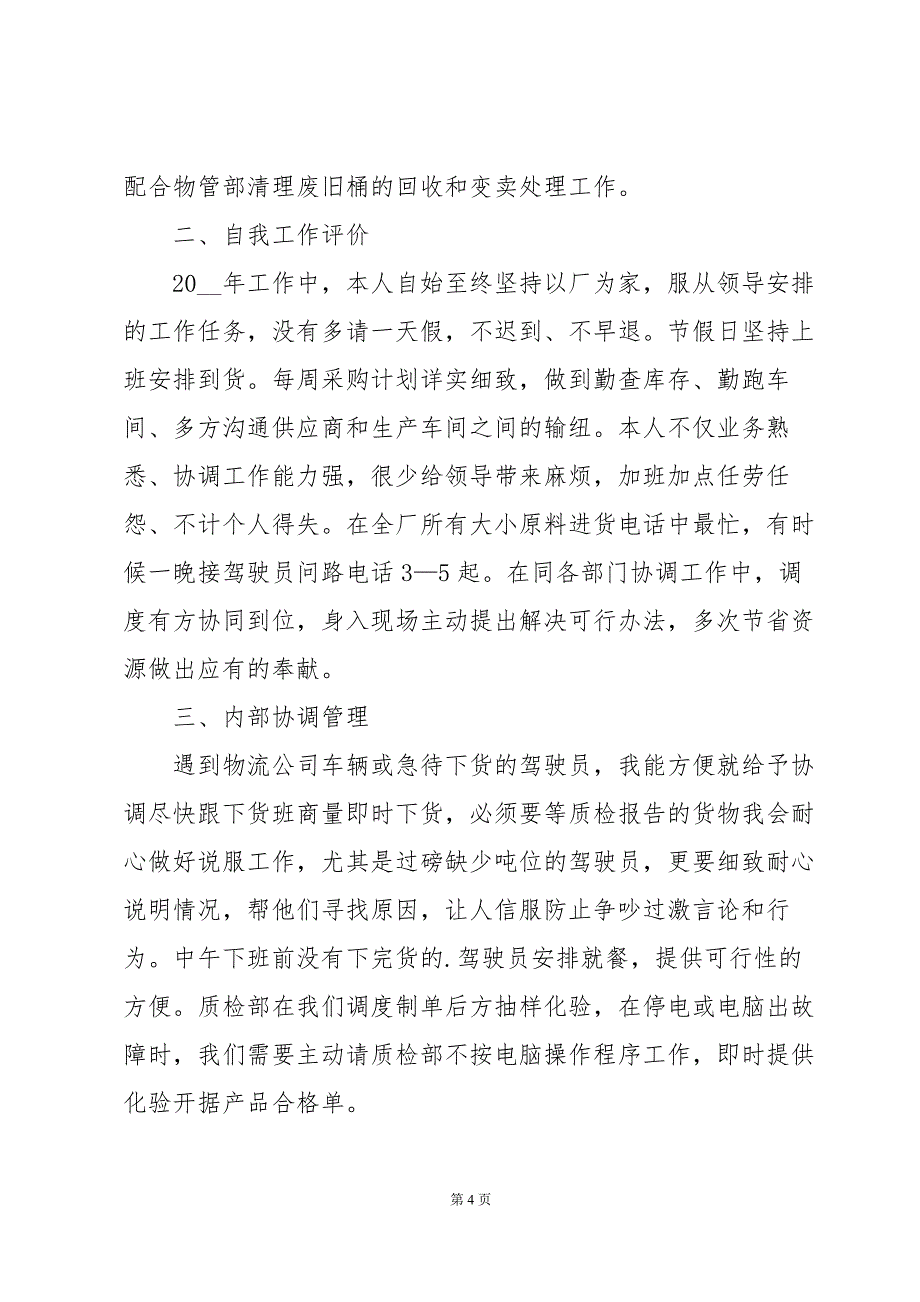 配合物管部清理废旧桶的回收和变卖处理工作。
二、自我工作评价
20__年工作中，本人自始至终坚持以厂为家，服从领导安排
的工作任务，没有多请一天假，不迟到、不早退。节假日坚持上
班安排到货。每周采购计划详实细致，做到勤查库存、勤跑车
间、多方沟通供应商和生产车间之间的输纽。本人不仅业务熟
悉、协调工作能力强，很少给领导带来麻烦，加班加点任劳任
怨、不计个人得失。在全厂所有大小原料进货电话中最忙，有时
候一晚接驾驶员问路电话 3—5 起。在同各部门协调工作中，调
度有方协同到位，身入现场主动提出解决可行办法，多次节省资
源做出应有的奉献。
三、内部协调管理
遇到物流公司车辆或急待下货的驾驶员，我能方便就给予协
调尽快跟下货班商量即时下货，必须要等质检报告的货物我会耐
心做好说服工作，尤其是过磅缺少吨位的驾驶员，更要细致耐心
说明情况，帮他们寻找原因，让人信服防止争吵过激言论和行
为。中午下班前没有下完货的.驾驶员安排就餐，提供可行性的
方便。质检部在我们调度制单后方抽样化验，在停电或电脑出故
障时，我们需要主动请质检部不按电脑操作程序工作，即时提供
化验开据产品合格单。
第 4 页